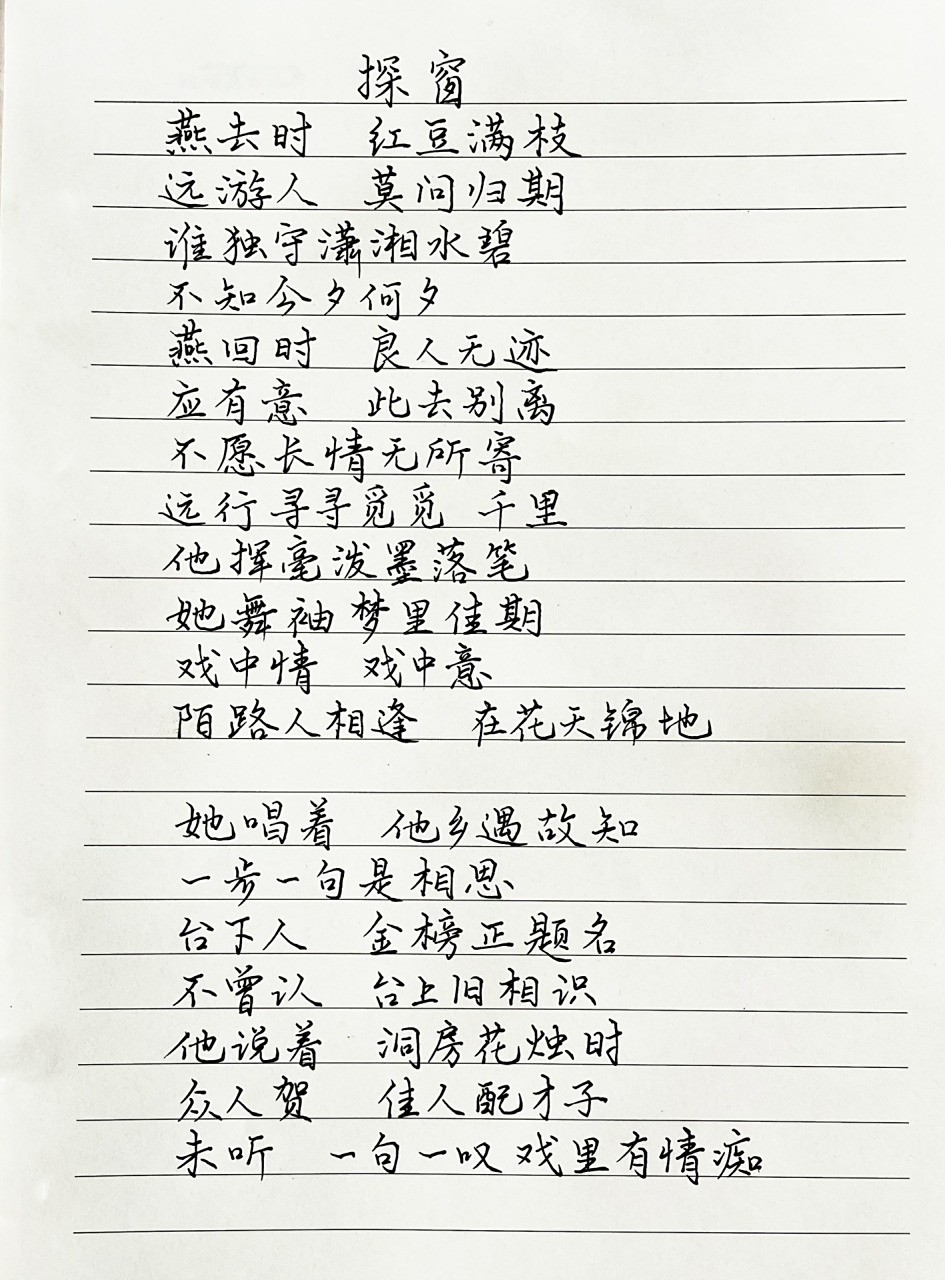 探窗
燕去时 红豆满枝
远游人 莫问归期
谁独守潇湘水碧
不知今夕何夕
燕回时 良人无迹
应有意 此去别离
不愿长情无所寄
远行寻寻觅觅 千里
他挥毫泼墨落笔
她舞袖梦里佳期
戏中情 戏中意
陌路人相逢 在花天锦地
她唱着 他乡遇故知
一步一句是相思
台下人 金榜正题名
不曾认 台上旧相识
他说着 洞房花烛时
众人贺 佳人配才子
未听 一句一叹戏里有情痴